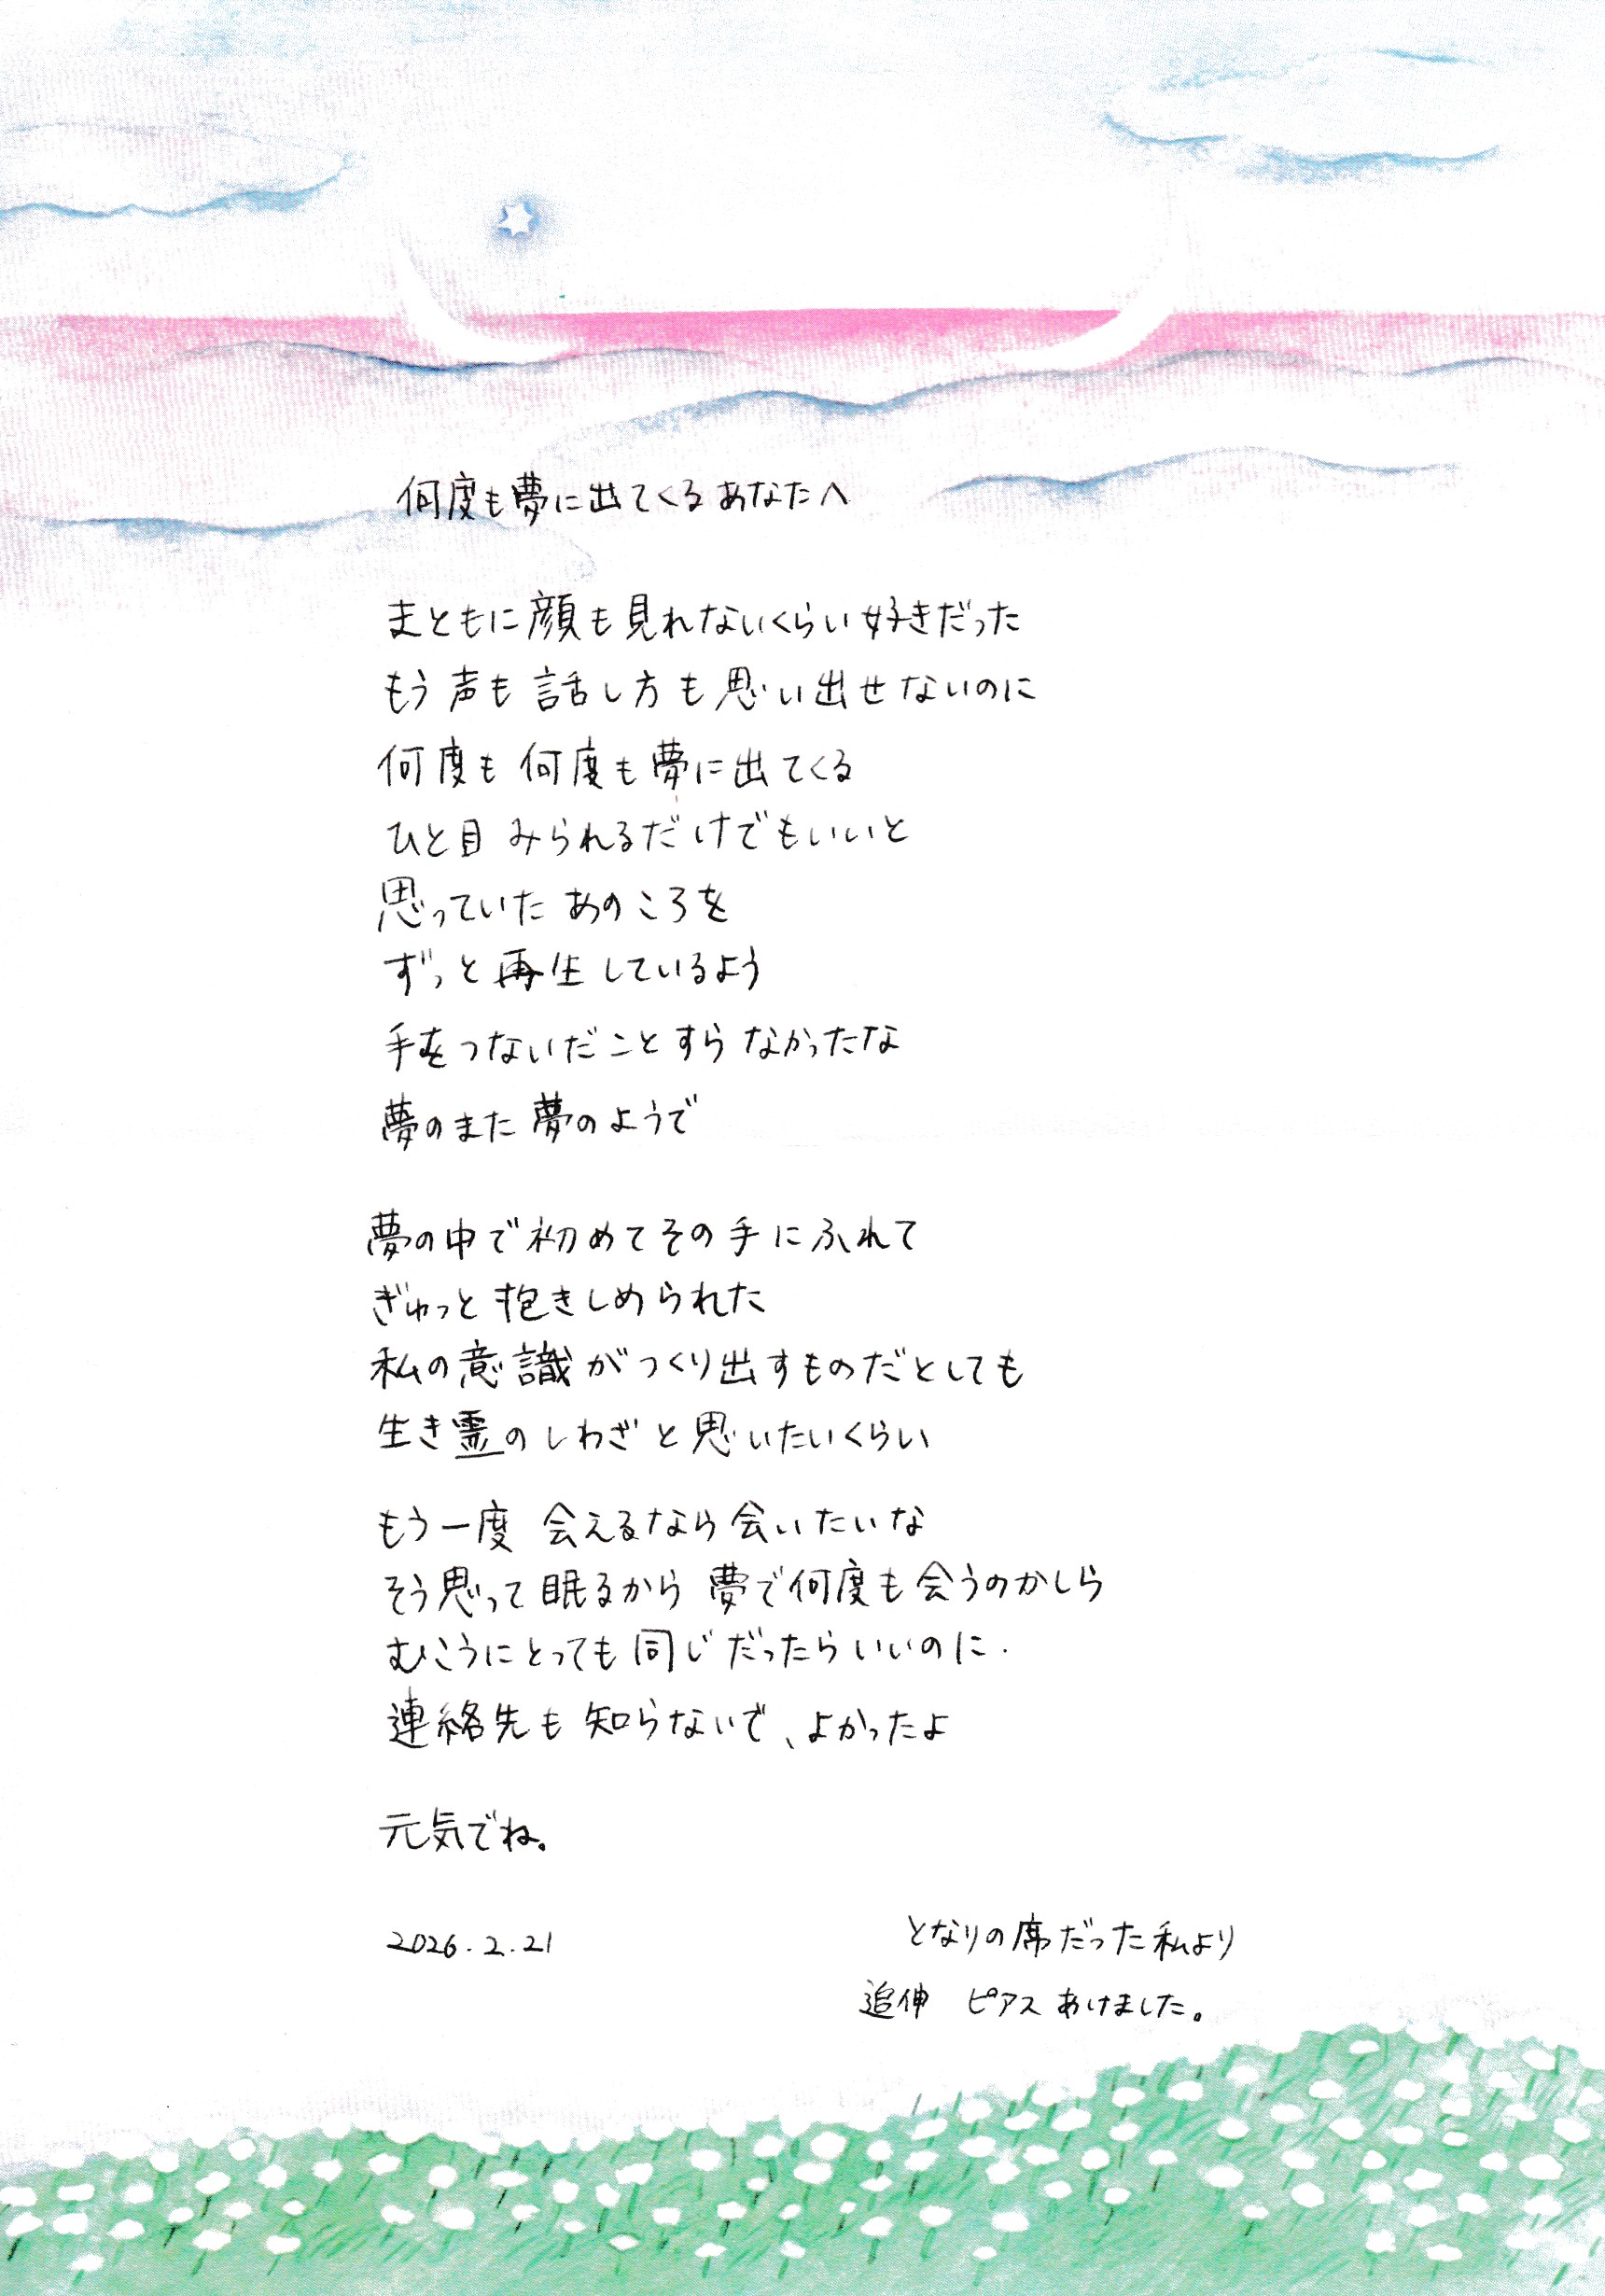 何度も夢に出てくるあなたへ
まともに顔も見れないくらい好きだった
もう声も話し方も思い出せないのに
何度も何度も夢に出てくる
ひと目みられるだけでもいいと
思っていたあのころを
ずっと再生しているよう
手をつないだことすらなかったな
夢のまた夢のようで
夢の中で初めてその手にふれて
ぎゅっと抱きしめられた
私の意識がつくり出すものだとしても
生き霊のしわざと思いたいくらい
もう一度 会えるなら会いたいな
そう思って眠るから 夢で何度も会うのかしら
むこうにとっても同じだったらいいのに.
連絡先も知らないで、よかったよ
元気でね。
2026.2.21
となりの席だった私より
追伸 ピアスあけました。